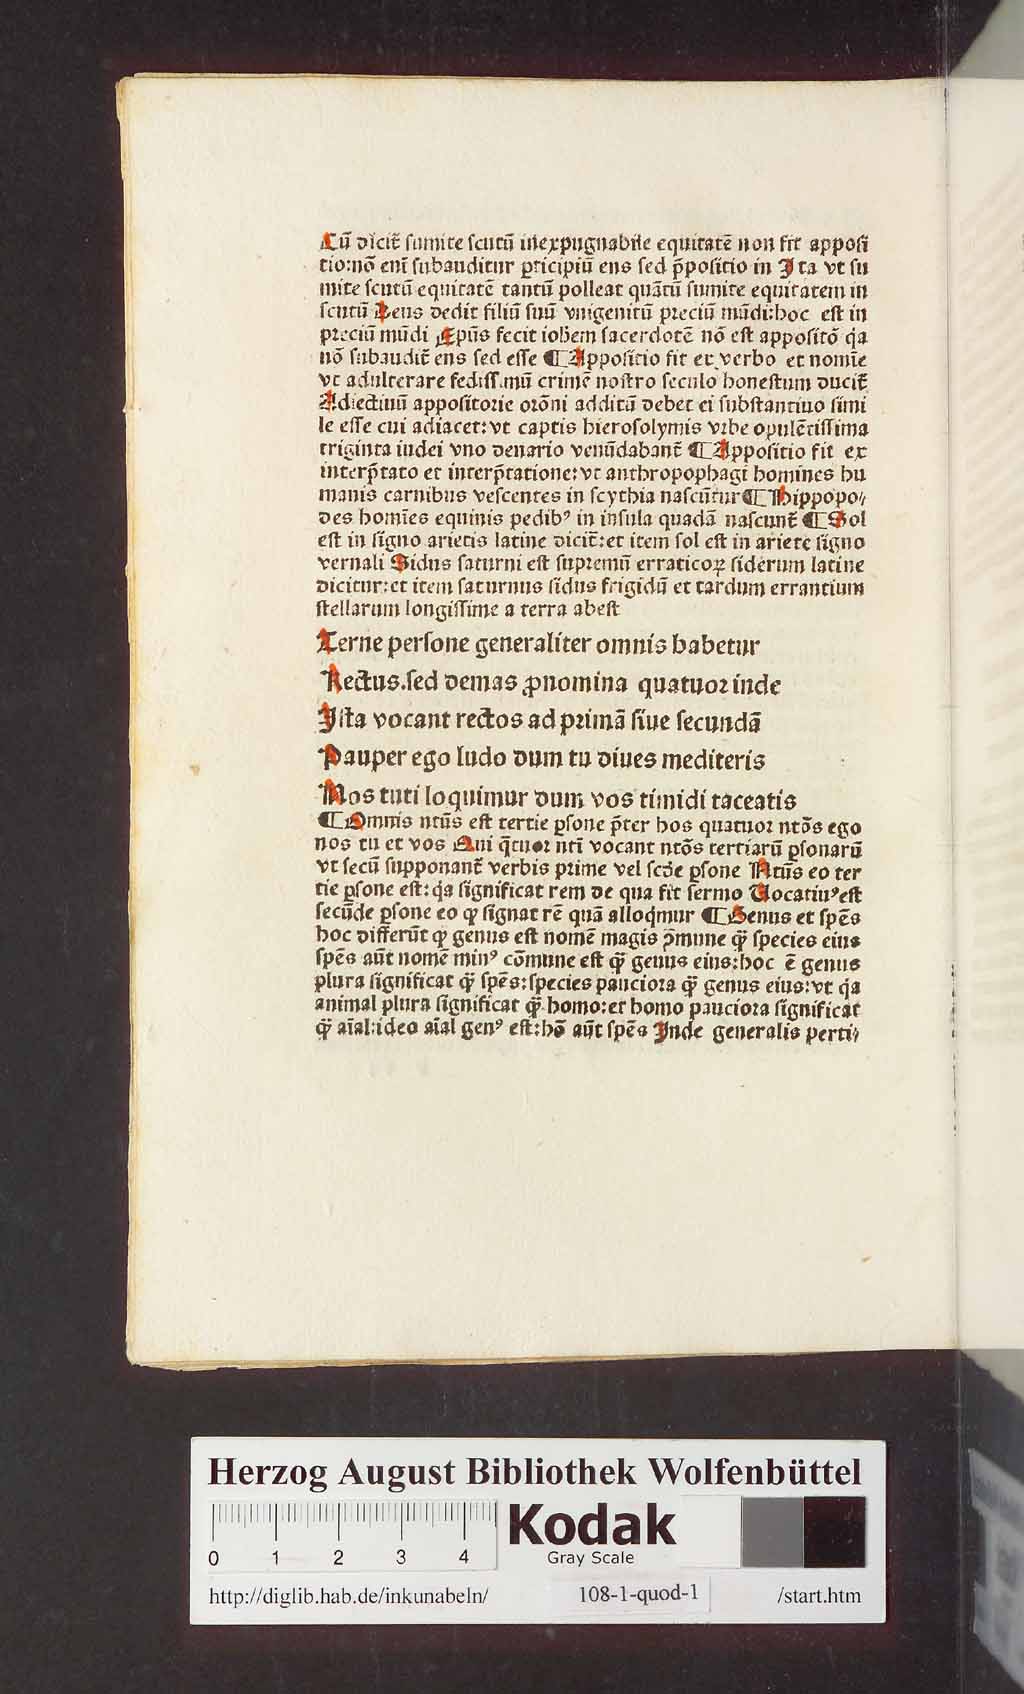 Cū dicit̄ sumite scutū inexpugnabile equitatē non fit apposi
tio:nō enī subauditur p̱ticipiū ens sed p̄positio in Ita vt su
mite scutū equitatē tantū polleat quātū sumite equitatem in
scutū Deus dedit filiū suū vnigenitū preciū mūdi:hoc est in
preciū mūdi Ep̄us fecit ioh̄em sacerdotē nō est appositō q̇a
nō subaudit̄ ens sed esse ¶ Appositio fit ex verbo et nomīe
vt adulterare fediss.mū crimē nostro seculo honestum ducit̄
Adiectiuū appositorie orōni additū debet ei substantiuo simi
le esse cui adiacet:vt captis hierosolymis vrbe opulētissima
triginta iudei vno denario venūdabant̄ ¶ Appositio fit ex
interp̄tato et interp̄tatione:vt anthropophagi homines hu
manis carnibus vescentes in scythia nascūtur ¶ Hippopo⸗
des homīes equinis pedibꝰ in insula quadā nascunt̄ ¶ Sol
est in signo arietis latine dicit̄:et item sol est in ariete signo
vernali Sidus saturni est supremū erraticoꝝ siderum latine
dicitur:et item saturnus sidus frigidū et tardum errantium
stellarum longissime a terra abest
Terne persone generaliter omnis habetur
Rectus.sed demas ꝓnomina quatuor inde
Ista vocant rectos ad primā siue secundā
Pauper ego ludo dum tu diues mediteris
Nos tuti loquimur dum vos timidi taceatis
¶ Omnis ntūs est tertie ꝑsone p̄ter hos quatuor ntōs ego
nos tu et vos Qui q̄tuor ntī vocant ntōs tertiarū ꝑsonarū
vt secū supponant̄ verbis prime vel scd̄e ꝑsone Ntūs eo ter
tie ꝑsone est:q̇a significat rem de qua fit sermo Vocatiuꝰ est
secūde ꝑsone eo ꝙ signat rē quā alloq̇mur ¶ Genus et spēs
hoc differūt ꝙ genus est nomē magis ꝯmune q̄ꝫ species eius
spēs aūt nomē minꝰ cōmune est q̄ꝫ genus eius:hoc ē genus
plura significat q̄ꝫ spēs:species pauciora q̄ꝫ genus eius:vt q̇a
animal plura significat q̄ꝫ homo:et homo pauciora significat
q̄ꝫ aīal:ideo aīal genꝰ est:hō aūt spēs Inde generalis perti⸗
Herzog August Bibliothek Wolfenbüttel
0 1 2 3 4
Kodak
Gray Scale
http://diglib.hab.de/inkunabeln/ 108-1-quod-1 /start.htm